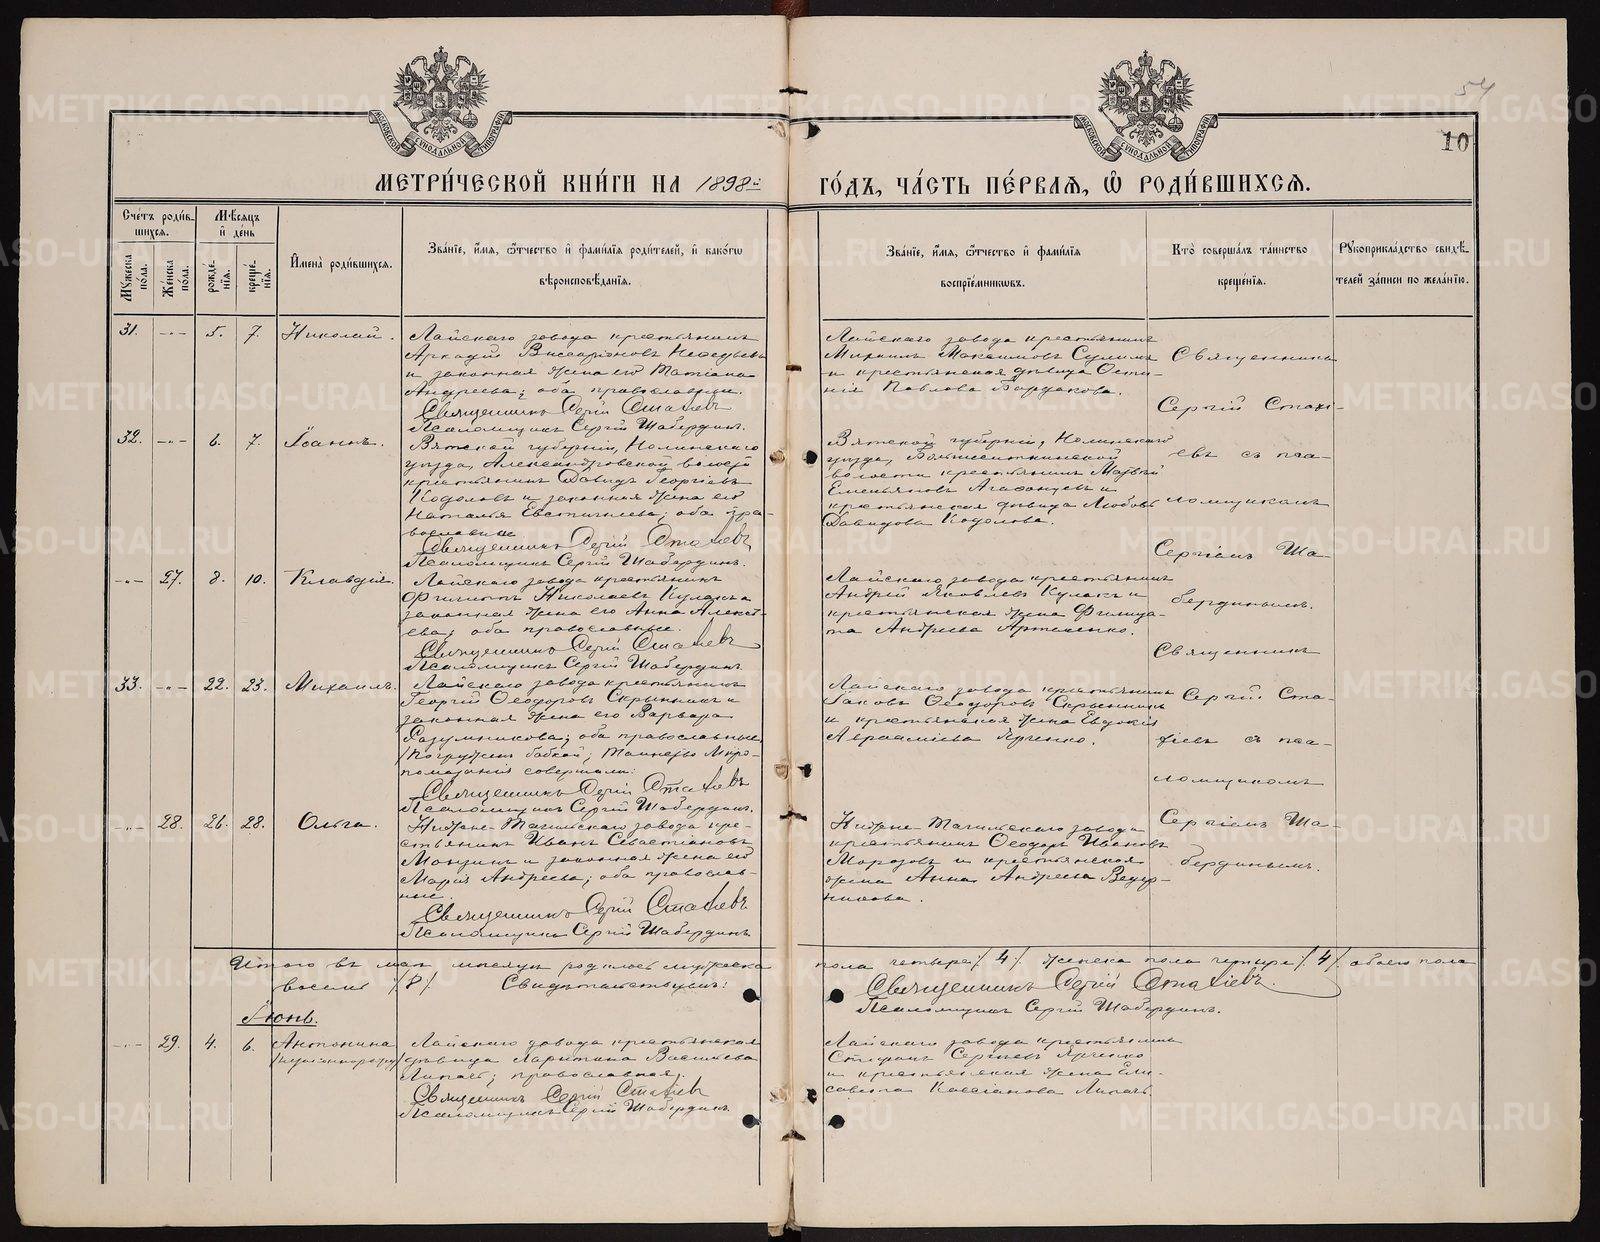 54
10
МЕТРИ́ЧЕСКОЙ КНИ́ГИ НА 1898й
ГО́ДЪ, ЧА́СТЬ ПЕ́РВАѦ, Ѡ҆ РОДИ́ВШИХСѦ.
Сче́тъ роди́вшихсѧ.
Мꙋ́жеска по́ла.
Же́нска по́ла.
Мѣ́сѧцъ и҆ де́нь
рожде́нїѧ.
креще́нїѧ.
И҆мена̀ роди́вшихсѧ.
Зва́нїе, и҆́мѧ, ѻ҆́тчество и҆ фами́лїѧ роди́телей, и҆ како́гѡ
вѣроисповѣ́данїѧ.
Зва́нїе, и҆́мѧ, ѻ҆́тчество и҆ фами́лїѧ
воспрїе́мникѡвъ.
Кто̀ соверша́лъ та́инство
креще́нїѧ.
Рꙋкоприкла́дство свидѣ́телей за́писи по жела́нїю.
31. -"- 5. 7. Николай.
Лайскаго завода крестьянинъ
Аркадій Виссаріоновъ
и законная жена его Татіана
Андреева; оба православные.
Священникъ Сергій Стахіевъ
Псаломщикъ Сергій Шабердинъ.
Лайскаго завода крестьянинъ
Михаилъ Максимовъ Сулима
и крестьянская дѣвица Усти-
нія Павлова Бардакова.
Священникъ
Сергій Стахі-
евъ съ пса-
ломщикомъ
Сергіемъ Ша-
бердинымъ.
32. -"- 6. 7. Іоаннъ.
Вятской губерніи, Нолинскаго
уѣзда, Александровской волости
крестьянинъ Давидъ Георгіевъ
Кодоловъ и законная жена его
Наталья Евстигнеева; оба пра-
вославные
Священникъ Сергій Стахіевъ
Псаломщикъ Сергій Шабердинъ.
Вятской губерніи, Нолинскаго
уѣзда,
волости крестьянинъ Матвѣй
Емельяновъ Агафонцевъ и
крестьянская дѣвица Любовь
Давидова Кодолова.
-"- 27. 8. 10. Клавдія.
Лайскаго завода крестьянинъ
Филиппъ Николаевъ Кулакъ и
законная жена его Анна Алексѣ-
ева; оба православные.
Священникъ Сергій Стахіевъ
Псаломщикъ Сергій Шабердинъ
Лайскаго завода крестьянинъ
Андрей Яковлевъ Кулакъ и
крестьянская жена Филица-
та Андреева Артеменко.
Священникъ
Сергій Ста-
хіевъ съ пса-
ломщикомъ
Сергіемъ Ша-
бердинымъ.
33. -"- 22. 23. Михаилъ.
Лайскаго завода крестьянинъ
Георгій Ѳеодоровъ Скрынникъ и
законная жена его Варвара
Разумникова; оба православные
/Погруженъ бабкой; таинство мѵро-
помазанія совершали:
Священникъ Сергій Стахіевъ
Псаломщикъ Сергій Шабердинъ.
Лайскаго завода крестьянинъ
Іаковъ Ѳеодоровъ Скрынникъ
и крестьянская жена Евдокія
Авраамиева Ярченко.
-"- 28. 26. 28. Ольга.
Нижне-Тагильскаго завода кре-
стьянинъ Иванъ Севастіановъ
и законная жена его
Марія Андреева; оба православ-
ные.
Священникъ Сергій Стахіевъ
Псаломщикъ Сергій Шабердинъ
Нижне-Тагильскаго завода
крестьянинъ Ѳеодоръ Ивановъ
Морозовъ и крестьянская
жена Анна Андреева Ведер-
никова.
Итого въ маѣ мѣсяцѣ родилось мужеска
пола четыре /4/. женска пола четыре /4/. обоего пола
восемь /8/ Свидѣтельствуемъ:
Священникъ Сергій Стахіевъ.
Псаломщикъ Сергій Шабердинъ.
Іюнь.
-"- 29. 4. 6. Антонина
/незаконнорожд/
Лайскаго завода крестьянская
дѣвица Харитина Васильева
Липатъ; православная.
Священникъ Сергій Стахіевъ
Псаломщикъ Сергій Шабердинъ.
Лайскаго завода крестьянинъ
Стефанъ Сергіевъ Ярченко
и крестьянская жена Ели-
савета Кассіанова Липатъ.
METRIKI.GASO-URAL.RU